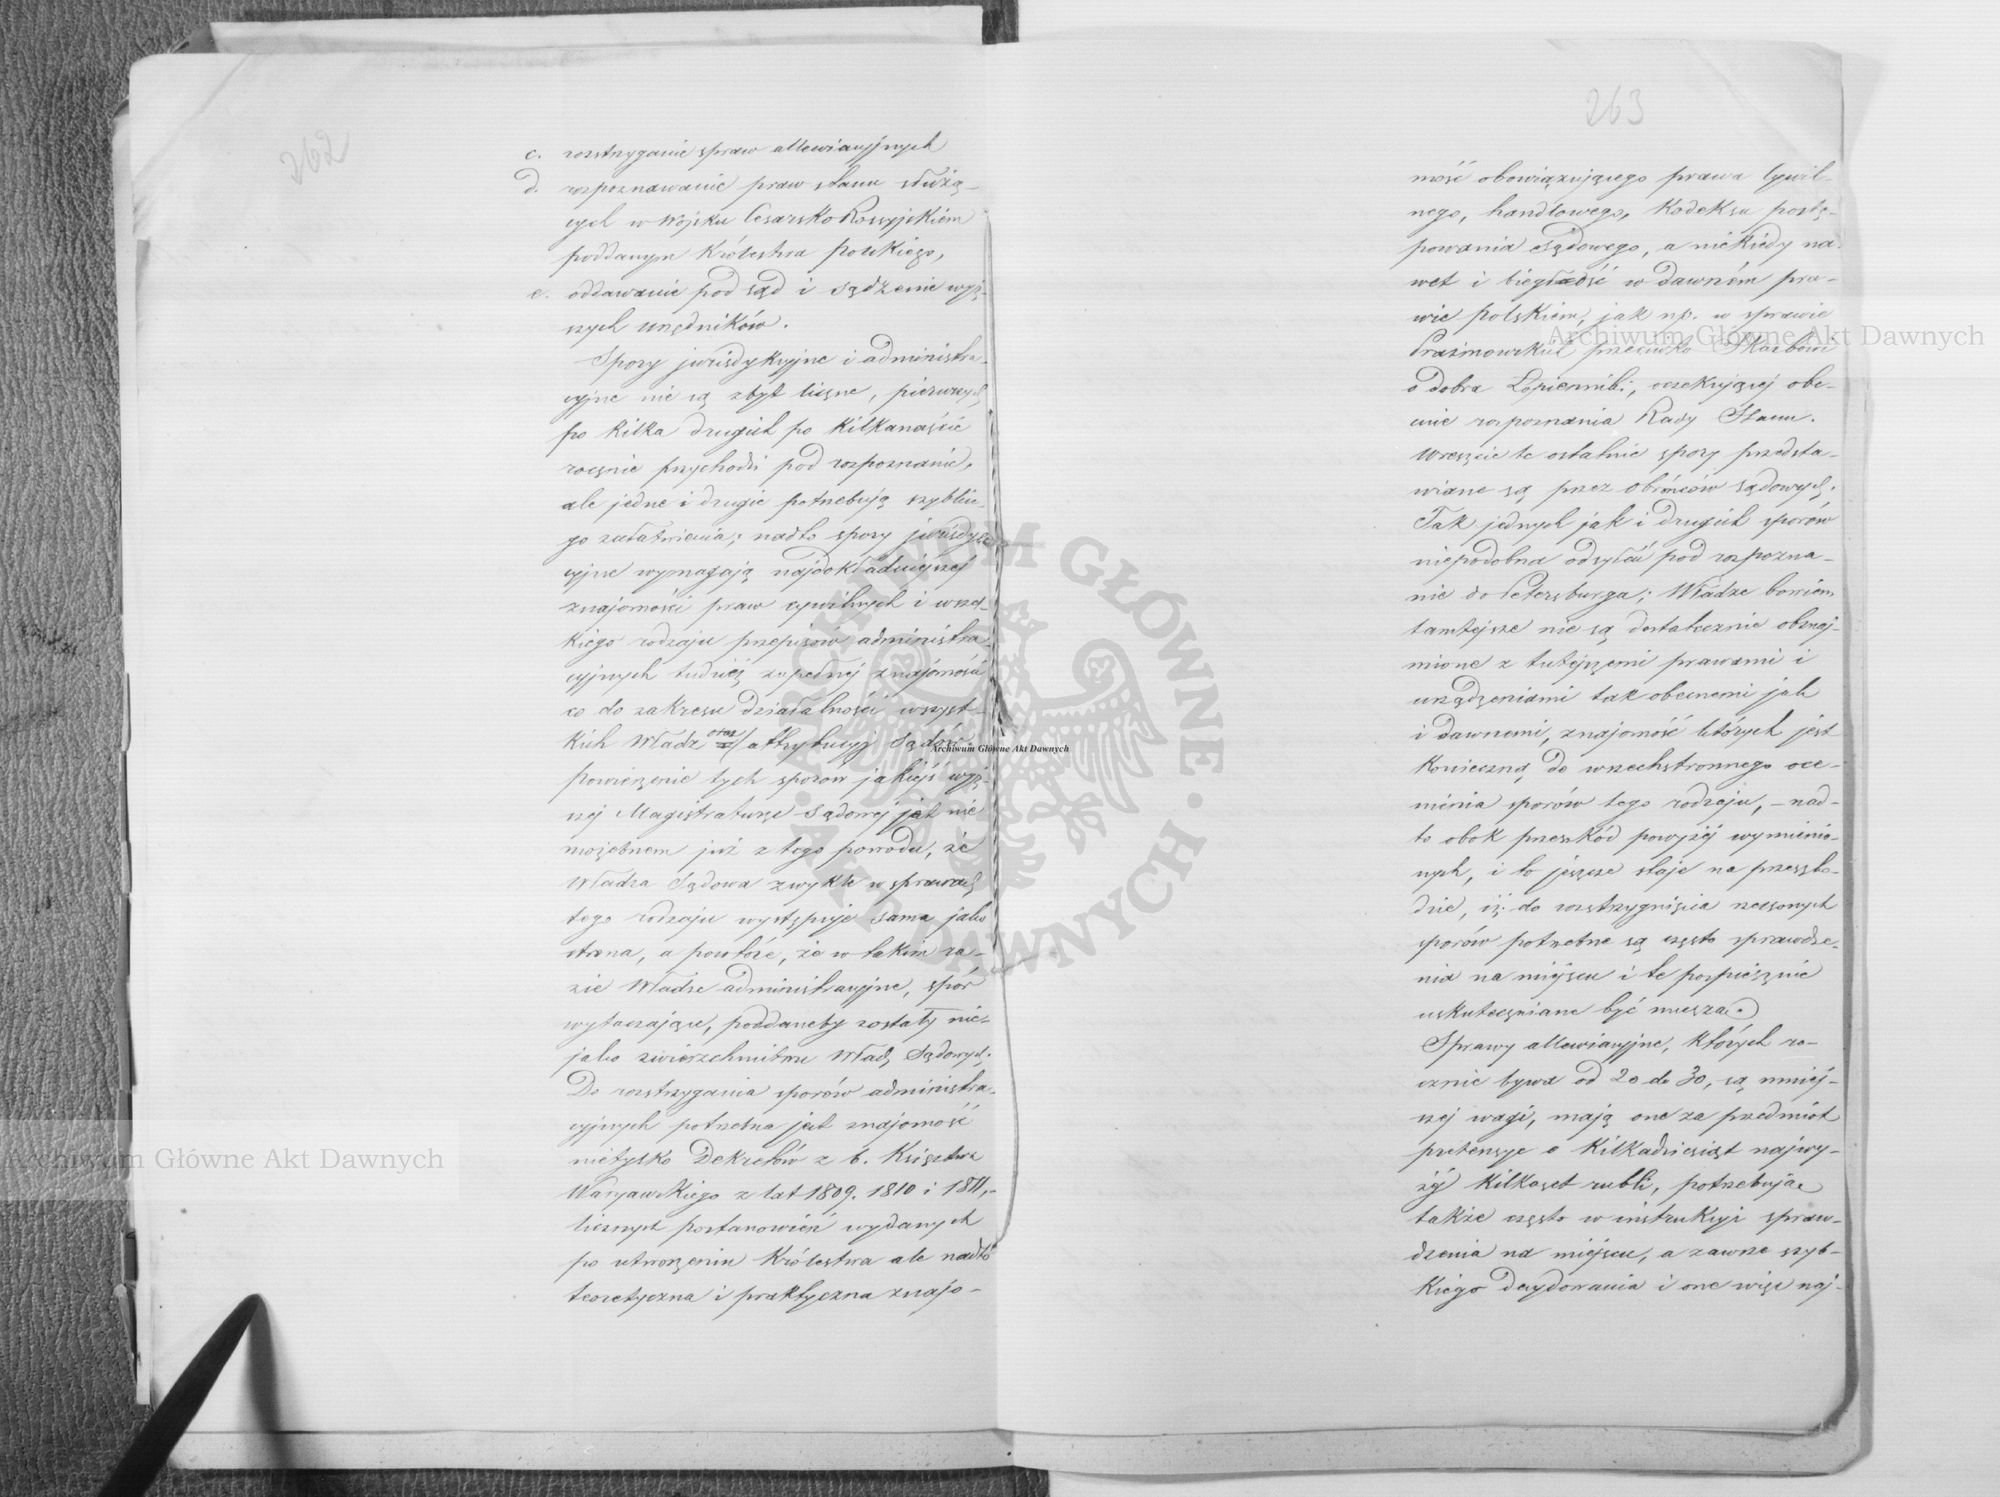 262
c. rozstrzyganie spraw allewiacyjnych
d. rozpoznawanie praw stanu służą-
cych w Wojsku Cesarsko Rossyjskiém
poddanym Królestwa Polskiego,
e. oddawanie pod sąd i sądzenie wyż-
szych urzędników.
Spory jurisdykcyjne i administra-
cyjne nie są zbyt liczne, pierwszych
po kilka drugich po kilkanaście
rocznie przychodzi pod rozpoznanie,
ale jedne i drugie potrzebują szybkie-
go załatwienia; nadto spory jurisdyk-
cyjne wymagają najdokładniejszej
znajomości praw cywilnych i wszel-
kiego rodzaju przepisów administra-
cyjnych tudzież zupełnej znajomości
co do zakresu działalności wszyst-
kich Władz oraz attrybucyj Sądów
powierzenie tych sporów jakiejś wyż-
szej Magistraturze Sądowej jest nie
możebnem już z tego powodu, że
Władza Sądowa zwykle w sprawach
tego rodzaju występuje sama jako
strona, a powtóre, że w takim ra-
zie Władze administracyjne, spór
wytaczające, poddaneby zostały nie-
jako zwierzchnictwu Władz Sądowych.
Do rozstrzygania sporów administra-
cyjnych potrzebna jest znajomość
nietylko Dekretów z b. Księstwa
Warszawskiego z lat 1809. 1810 i 1811,-
licznych postanowień wydanych
po utworzeniu Królestwa ale nadto
teoretyczna i praktyczna znajo-
263
mość obowiązującego prawa Cywil-
nego, handlowego, Kodeksu postę-
powania Sądowego, a niekiedy na-
wet i biegłość w dawném pra-
wie polskiem, jak np. w sprawie
przeciwko Skarbowi
o dobra oczekującej obe-
cnie rozpoznania Rady Stanu.
Wreszcie te ostatnie spory przedsta-
wiane są przez obrońców sądowych.
Tak jednych jak i drugich sporów
niepodobna odsyłać pod rozpozna-
nie do Petersburga; Władze bowiem
tamtejsze nie są dostatecznie obznaj-
mione z tutejszemi prawami i
urządzeniami tak obecnemi jak
i dawnemi, znajomość których jest
konieczną do wszechstronnego oce-
nienia sporów tego rodzaju, - nad-
to obok przeszkód powyżej wymienio-
nych, i to jeszcze staje na przeszko-
dzie, iż do rozstrzygnięcia rzeczonych
sporów potrzebne są często sprawdze-
nia na miejscu i te pospiesznie
uskuteczniane być muszą.
Sprawy allewiacyjne, których ro-
cznie bywa od 20 do 30, są mniej-
szej wagi, mają one za przedmiot
pretensye o kilkadziesiąt najwy-
żej kilkaset rubli, potrzebują
także często w instrukcyi spraw-
dzenia na miejscu, a zawsze szyb-
kiego decydowania i one więc naj-
Archiwum Główne Akt Dawnych
Archiwum Główne Akt Dawnych
Archiwum Główne Akt Dawnych
ARCHIWUM GŁÓWNE · AKT DAWNYCH ·